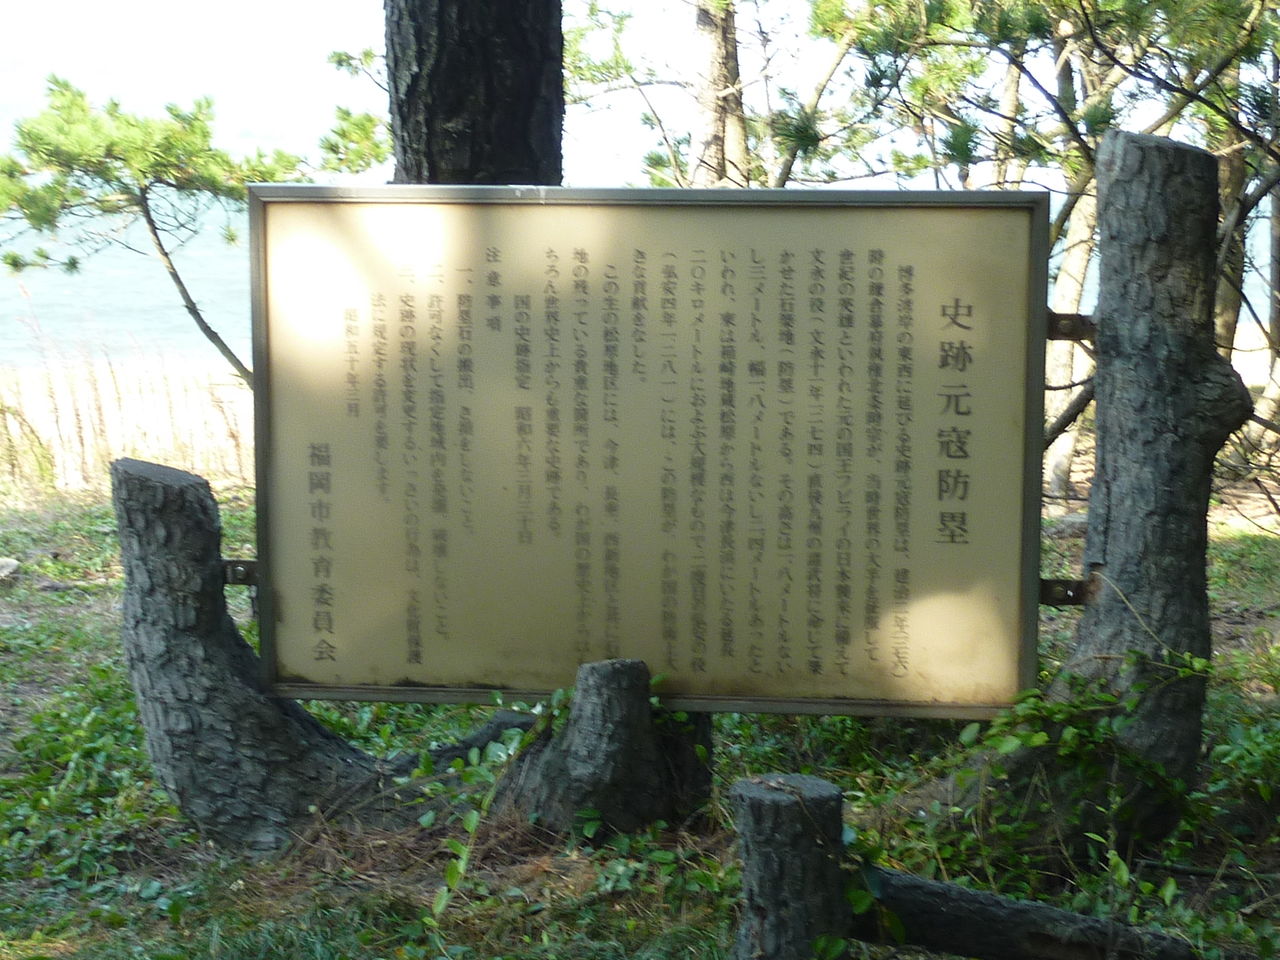 史跡元寇防塁
博多湾岸の東西に延びる史跡元寇防塁は、建治二年(一二七六)
時の鎌倉幕府執権北条時宗が、当時世界の大半を征服して
世紀の英雄といわれた元の国王フビライの日本襲来に備えて
文永の役(文永十一年一二七四)直後九州の諸武将に命じて築
かせた石築地(防塁)である。その高さは一.八メートルない
し三メートル、幅一.八メートルないし三.四メートルあったと
いわれ、東は箱崎地蔵松原から西は今津長浜にいたる延長
二〇キロメートルにおよぶ大規模なもので二度目の弘安の役
(弘安四年一二八一)には、この防塁が、わが国の防衛に大
きな貢献をなした。
この生の松原地区には、今津、長垂、西新地区と共に
地の残っている貴重な箇所であり、わが国の歴史上
ちろん世界史上からも重要な史跡である。
国の史跡指定 昭和六年三月三十日
注意事項
一、防塁石の搬出、き損をしないこと。
二、許可なくして指定地域内を発掘、破壊しないこと。
三、史跡の現状を変更するいっさいの行為は、文化財保護
法に規定する許可を要します。
昭和五十年三月
福岡市教育委員会